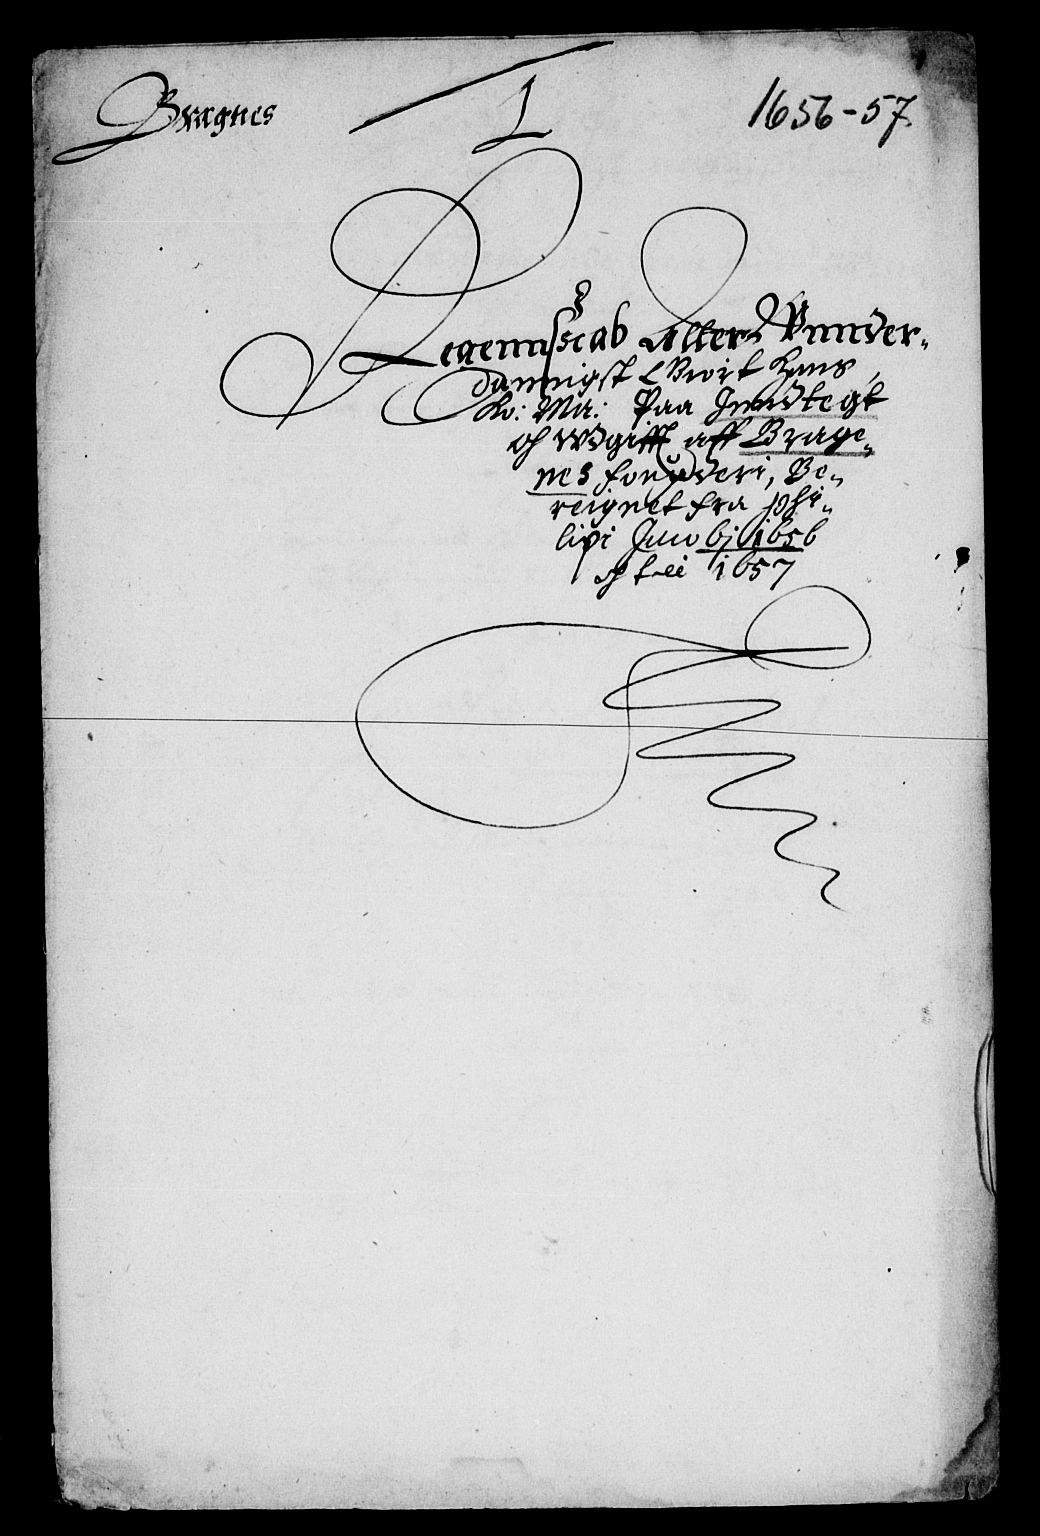 Bragnes
1
1656-57.
Regennscab Aller Vnnder-
dannigst Giort Hans
Ko: Ma: Paa Inndtegt
och Wdgifft aff Brage-
nes fougderi, Be-
reignet fra Phi-
lipi Jacobj 1656
och till 1657